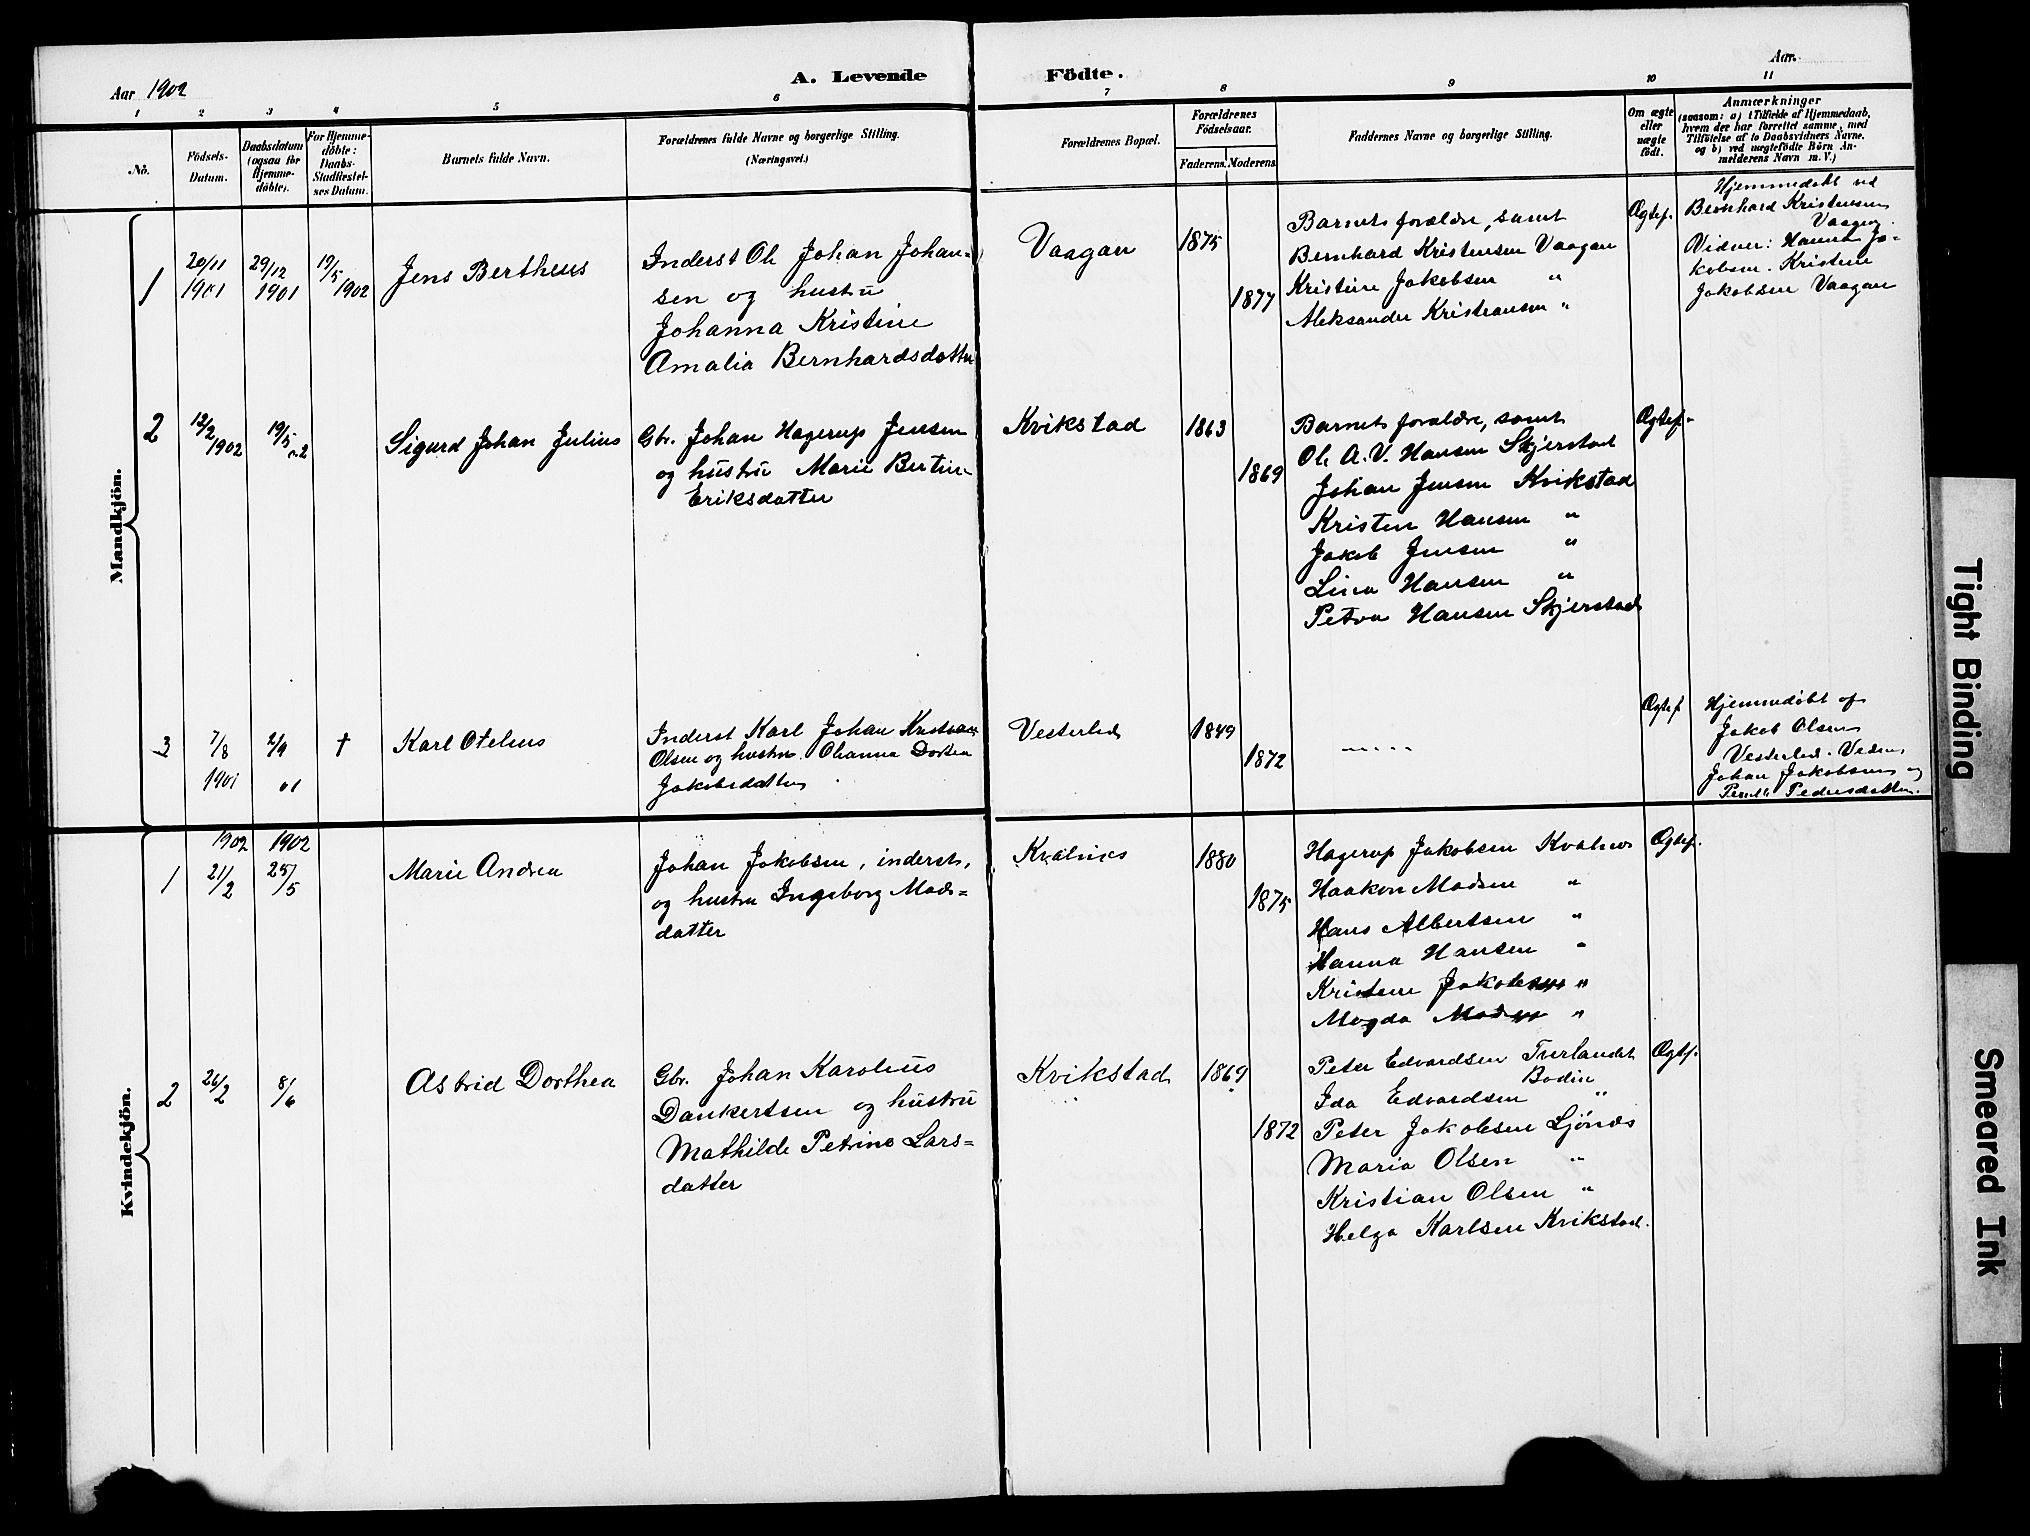 Aar 1902
A. Levende Födte.
Aar.
1 2 3 4 5 6 7 8 9 10 11
No.
Födsels-
Datum.
Daabsdatum
(ogsaa for
Hjemme-
döbte).
For Hjemme-
döbte:
Daabs-
Stadfæstel-
ses Datum.
Barnets fulde Navn.
Forældrenes fulde Navne og borgerlige Stilling.
(Næringsvei.)
Forældrenes Bopæl.
Forældrenes
Födselsaar.
Faderens. Moderens.
Faddernes Navne og borgerlige Stilling.
Om ægte
eller
uægte
födt.
Anmærkninger
(saasom: a) i Tilfælde af Hjemmedaab,
hvem der har forrettet samme, med
Tilföielse af to Daabsvidners Navne,
og b) ved uægtefödte Börn An-
melderens Navn m. V.)
Mandkjön.
1
20/11
1901
29/12
1901
19/5
1902
Jens Bertheus
Inderst Ole Johan Johan-
sen og hustru
Johanna Kristine
Amalia Bernhardsdatter
Vaagan
1875
1877
Barnets forældre, samt
Bernhard Kristensen Vaagan
Kristine Jakobsen "
Aleksander Kristiansen "
Ægtef.
Hjemmedøbt ved
Bernhard Kristensen
Vaagan.
Vidner: Hanna Ja-
kobsen. Kristine
Jakobsen Vaagan
2
12/2
1902
19/5
02
Sigurd Johan Julius
Gbr. Johan Hagerup Jensen
og hustru Marie Bertine
Eriksdatter
Kvikstad
1863
1869
Barnets forældre, samt
Ole A. V. Hansen Skjerstad
Johan Jensen Kvikstad
Kristen Hansen "
Jakob Jensen "
Lina Hansen "
Petra Hansen Skjerstad
Ægtef.
3
7/8
1901
2/9
01
†
Karl Otelius
Inderst Karl Johan Kristian
Olsen og hustru Oleanna Dortea
Jakobsdatter
Vesterled
1849
1872
" " " "
Ægtef
Hjemmedøbt af
Jakob Olsen
Vesterled. Vidner,
Johan Jakobsen og
Pedersdatter.
Kvindekjön.
1902 1902
1
21/2
25/5
Marie Andrea
Johan Jakobsen, inderst,
og hustru Ingeborg Mads=
datter
Kvalnes
1880
1875
Hagerup Jakobsen Kvalnes
Haakon Madsen "
Hans Albertsen "
Hanna Hansen "
Kristine Jakobsen "
Magda Madsen "
Ægtef.
2
26/2
8/6
Astrid Dorthea
Gbr. Johan Karolius
Dankertsen og hustru
Mathilde Petrine Lars=
datter
Kvikstad
1869
1872
Peter Edvardsen Tuvlandet
Bodin
Ida Edvardsen "
Peter Jakobsen Ljønes
Maria Olsen "
Kristian Olsen "
Helga Karlsen Kvikstad.
Ægtf.
Tight Binding
Smeared Ink